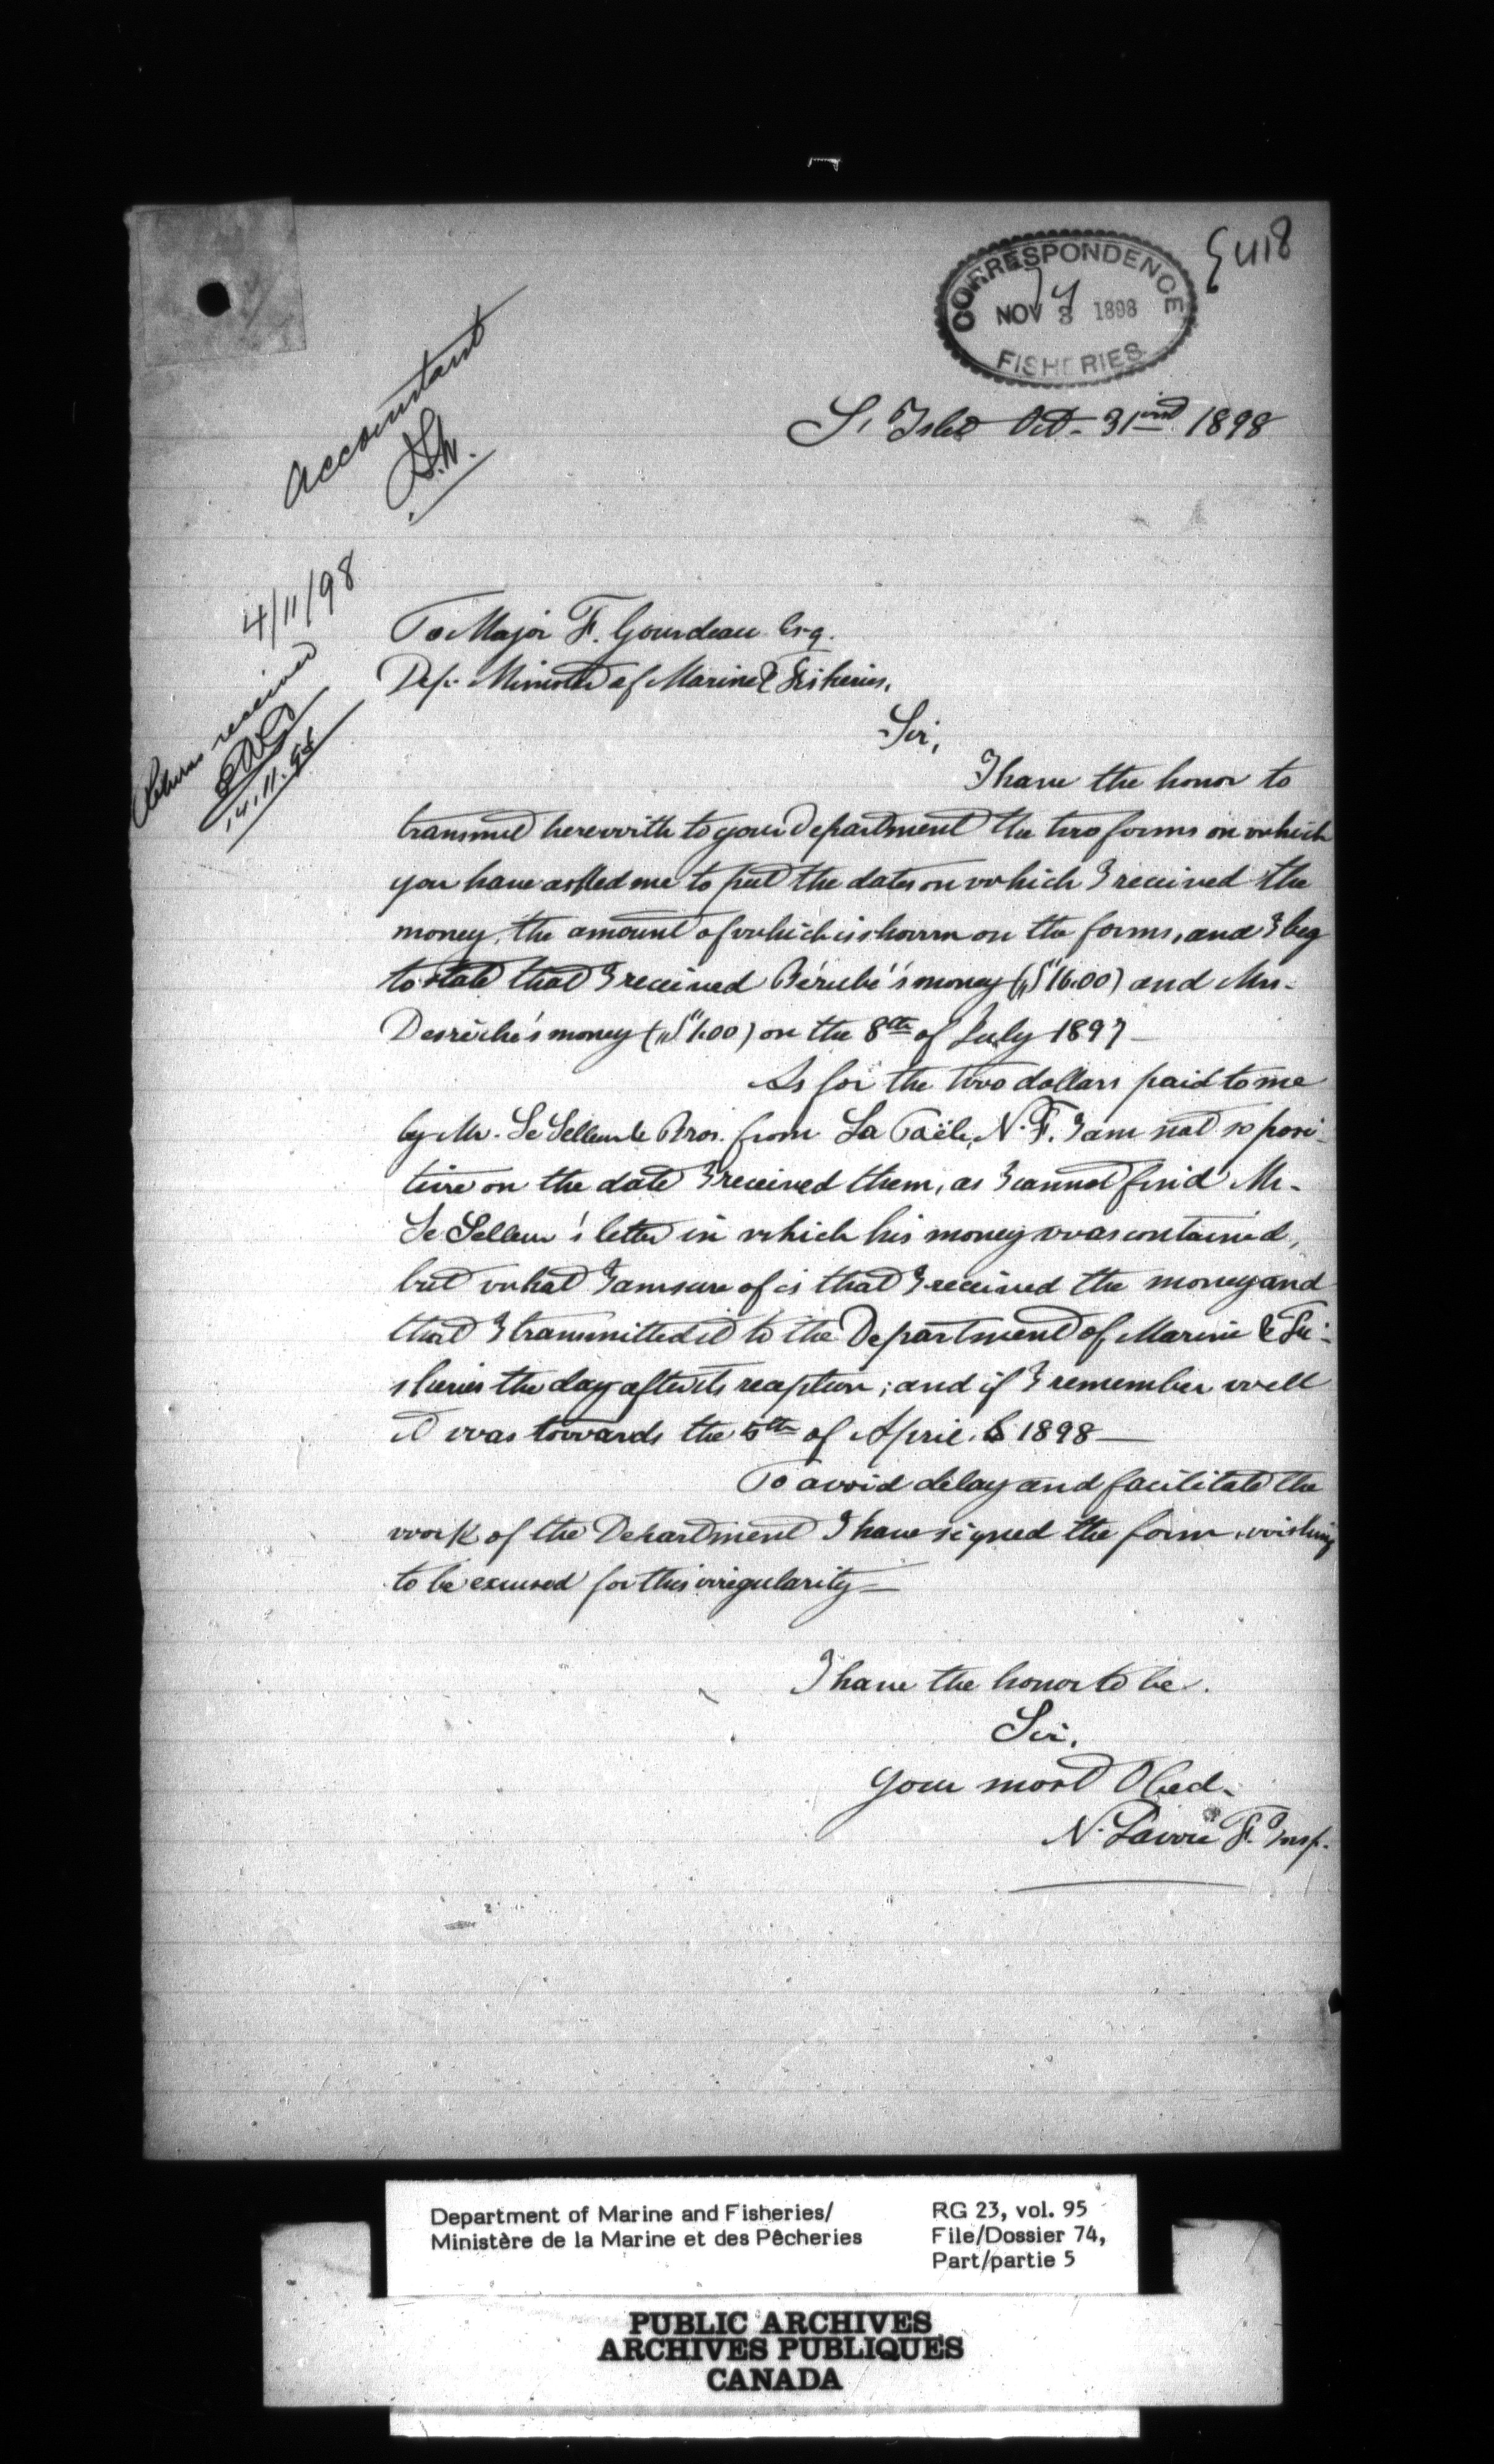 CORRESPONDENCE
74
NOV 3 1898
FISHERIES
Accountant
4/11/98
Returns received
14.11.98
L'Islet Oct. 31 1898
To Major F. Gourdeau Esq.
Dep. Minister of Marine & Fisheries,
Sir,
I have the honor to
transmit herewith to your Department the two forms on which
you have asked me to put the dates on which I received the
money, the amount of which is shown on the forms, and I beg
to state that I received Bérubé's money ($16.00) and Mrs.
money ($1.00) on the 8th of July 1897 –
As for the two dollars paid to me
by Mr. Le Selleur & Bros. from N.F. I am not so posi-
tive on the date I received them, as I cannot find Mr.
Le Selleur's letter in which his money was contained,
but what I am sure of is that I received the money and
that I transmitted it to the Department of Marine & Fi-
sheries the day after its reception; and if I remember well
it was towards the 5th of April 1898 —
To avoid delay and facilitate the
work of the Department I have signed the form, wishing
to be excused for this irregularity —
I have the honor to be.
Sir,
Your most Obed.
N. Lavoie F. Insp.
Department of Marine and Fisheries/
Ministère de la Marine et des Pêcheries
RG 23, vol. 95
File/Dossier 74,
Part/partie 5
PUBLIC ARCHIVES
ARCHIVES PUBLIQUES
CANADA